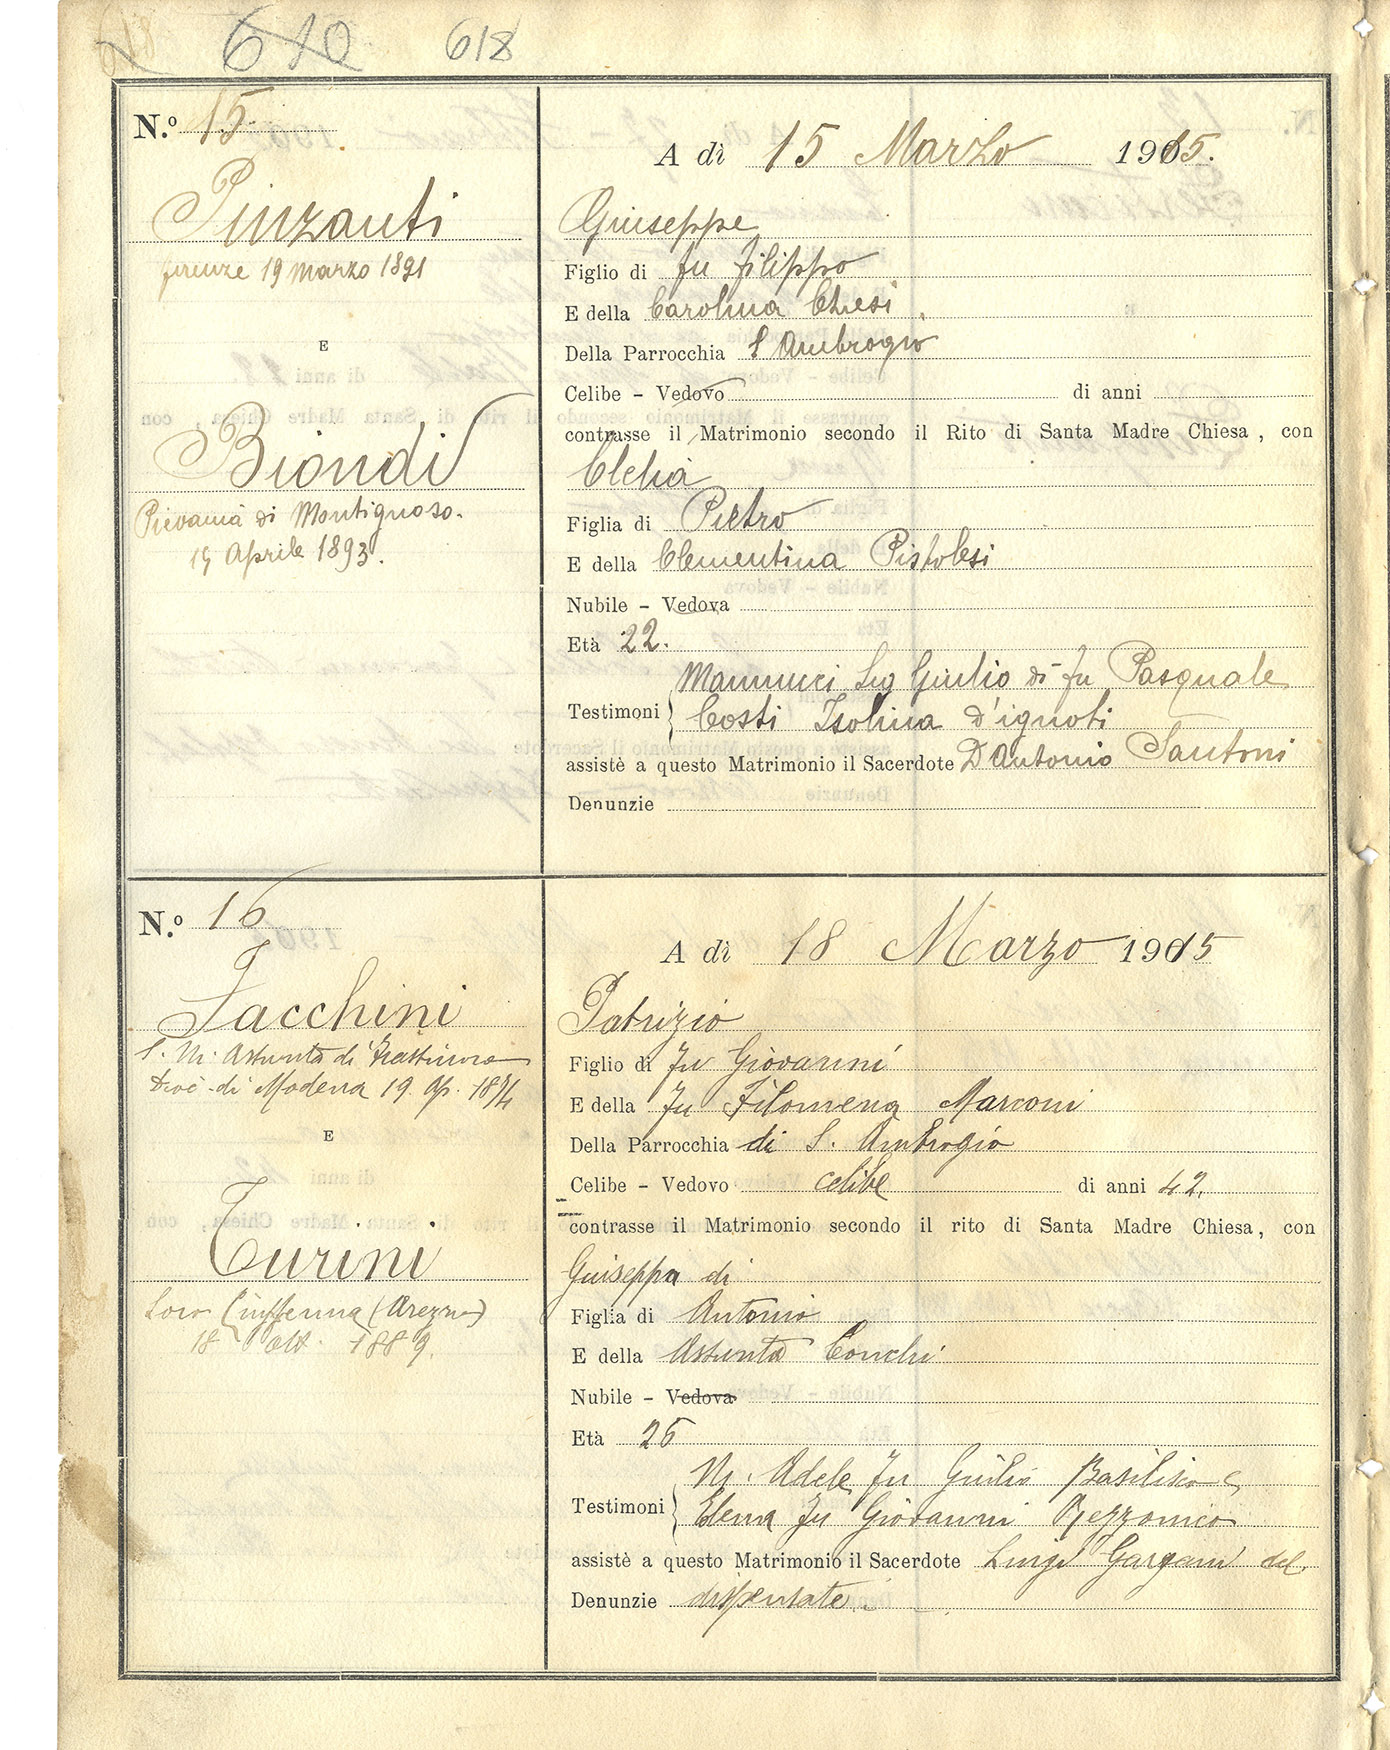 610 618
N.º 15
Pinzauti
Firenze 19 Marzo 1891
E
Biondi
Pievania di Montignoso.
19 Aprile 1893.
A dì 15 Marzo 1915.
Giuseppe
Figlio di fu Filippo
E della Carolina Chesi
Della Parrocchia S Ambrogio
Celibe – Vedovo di anni
contrasse il Matrimonio secondo il Rito di Santa Madre Chiesa, con
Clelia
Figlia di Pietro
E della Clementina Pistolesi
Nubile – Vedova
Età 22.
Mannucci Sig Giulio di fu Pasquale
Testimoni
Costi Isolina d'ignoti
assistè a questo Matrimonio il Sacerdote D Antonio Santoni
Denunzie
N.º 16
Facchini
S. M. Assunta di
Dioc. di Modena 19. Ap. 1874
E
Turini
Loro Ciuffenna (Arezzo)
18 Ott. 1889.
A dì 18 Marzo 1915
Patrizio
Figlio di fu Giovanni
E della fu Filomena Marconi
Della Parrocchia di S. Ambrogio
Celibe – Vedovo celibe di anni 42.
contrasse il Matrimonio secondo il rito di Santa Madre Chiesa, con
Giuseppa di
Figlia di Antonio
E della Assunta Conchi
Nubile – Vedova
Età 26
M. Adele fu Giulio Basilisco e
Testimoni
Elena fu Giovanni Rezzonico
assistè a questo Matrimonio il Sacerdote Luigi Gargani del.
Denunzie dispensate.